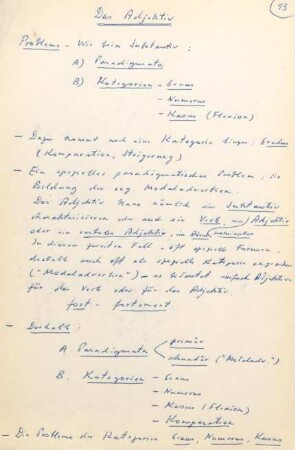 93
Das Adjektiv
Probleme - Wie beim Substantiv:
A) Paradigmata
B) Kategorien - Genus
- Numerus
- Kasus (Flexion)
- Dazu kommt noch eine Kategorie hinzu: Gradus
(Komparation, Steigerung)
- Ein spezielles paradigmatisches Problem: die
Bildung der sog. Modaladverbien.
Das Adjektiv kann nämlich ein Substantiv
charakterisieren oder auch ein Verb, ein Adjektiv
oder ein verbales Adjektiv,
In diesem zweiten Fall - oft spezielle Formen,
deshalb auch oft als spezielle Kategorie angesehen
("Modaladverbien") - es sind einfach Adjektive
für das Verb oder für das Adjektiv.
fort - fortement
- Deshalb:
A. Paradigmata primär
sekundär ("Modaladv.")
B. Kategorien - Genus
- Numerus
- Kasus (Flexion)
- Komparation
- Die Probleme der Kategorien Genus, Numerus, Kasus